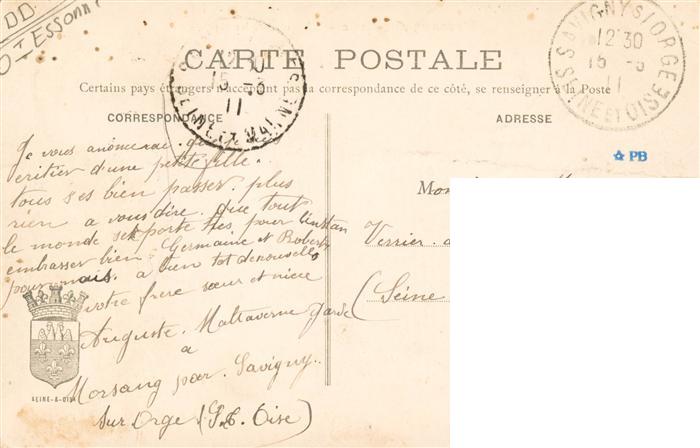 DD
Essonne
CARTE POSTALE
Certains pays étrangers n'acceptant pas la correspondance de ce côté, se renseigner à la Poste
CORRESPONDANCE
ADRESSE
SEINE ET MARNE
15 -5
11
SAVIGNY S/ ORGE
12 30
15 -5
11
SEINE ET OISE
PB
Je vous anoncerai que
veritier d'une petite fille.
tous ses bien passer. plus
rien a vous dire. que tout
le monde se porte tres pour l'instan
embrasser bien Germaine et Robert
pour mais. a bien tot de nouvelle
votre frere sœur et niece
Auguste. Maltaverne garde
a
Morsang par. Savigny.
sur Orge (S. Oise)
SEINE-&-OISE
Mon
Verrier. a
(Seine